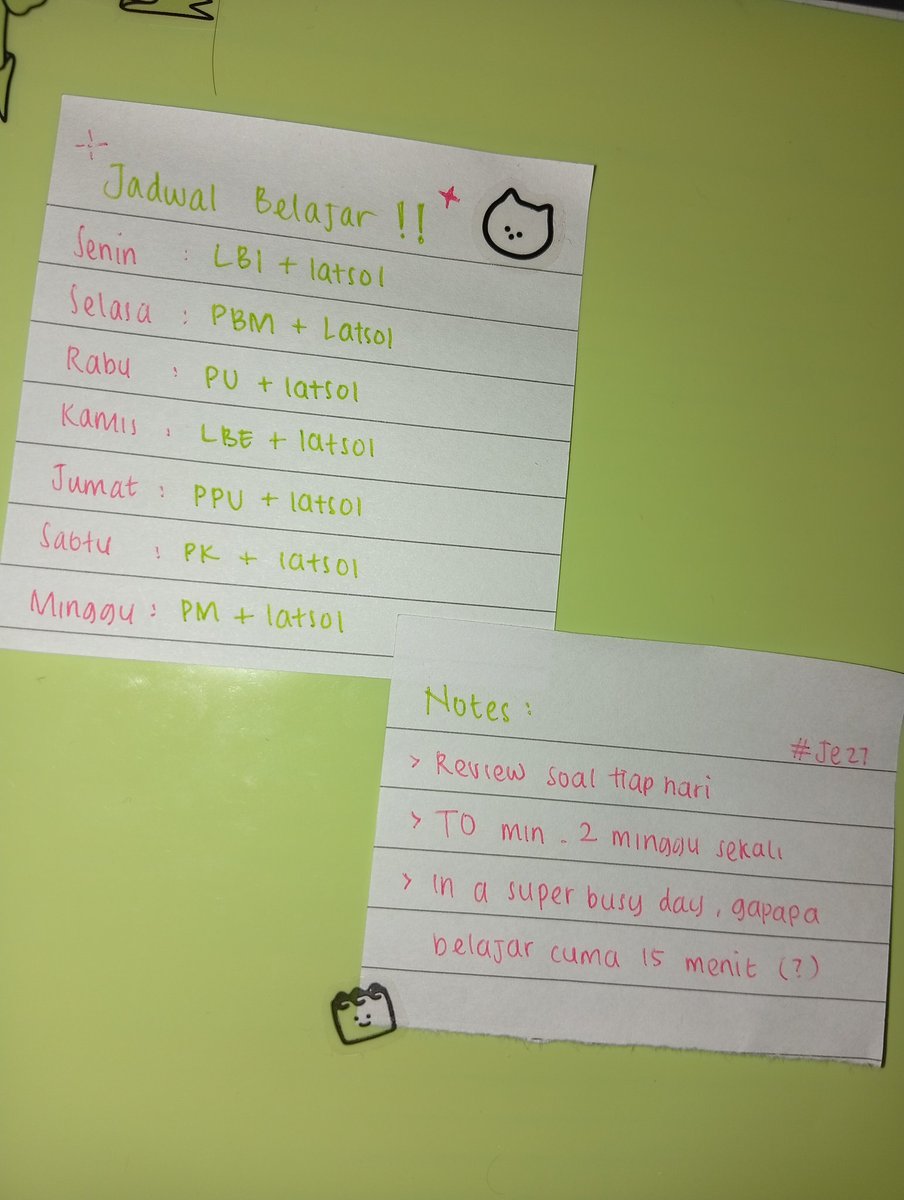 Jadwal Belajar !!
Senin : LBI + latsol
Selasa : PBM + Latsol
Rabu : PU + latsol
Kamis : LBE + latsol
Jumat : PPU + latsol
Sabtu : PK + latsol
Minggu : PM + latsol
Notes :
#Je27
> Review soal tiap hari
> TO min . 2 minggu sekali
> In a super busy day, gapapa
belajar cuma 15 menit (?)